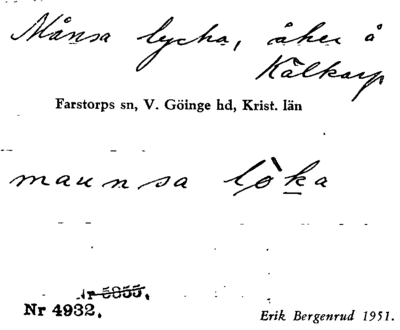 Månsa lycka, åker å
Kälkarp
Farstorps sn, V. Göinge hd, Krist. län
maunsa lòka
Nr 5855.
Nr 4932.
Erik Bergenrud 1951.